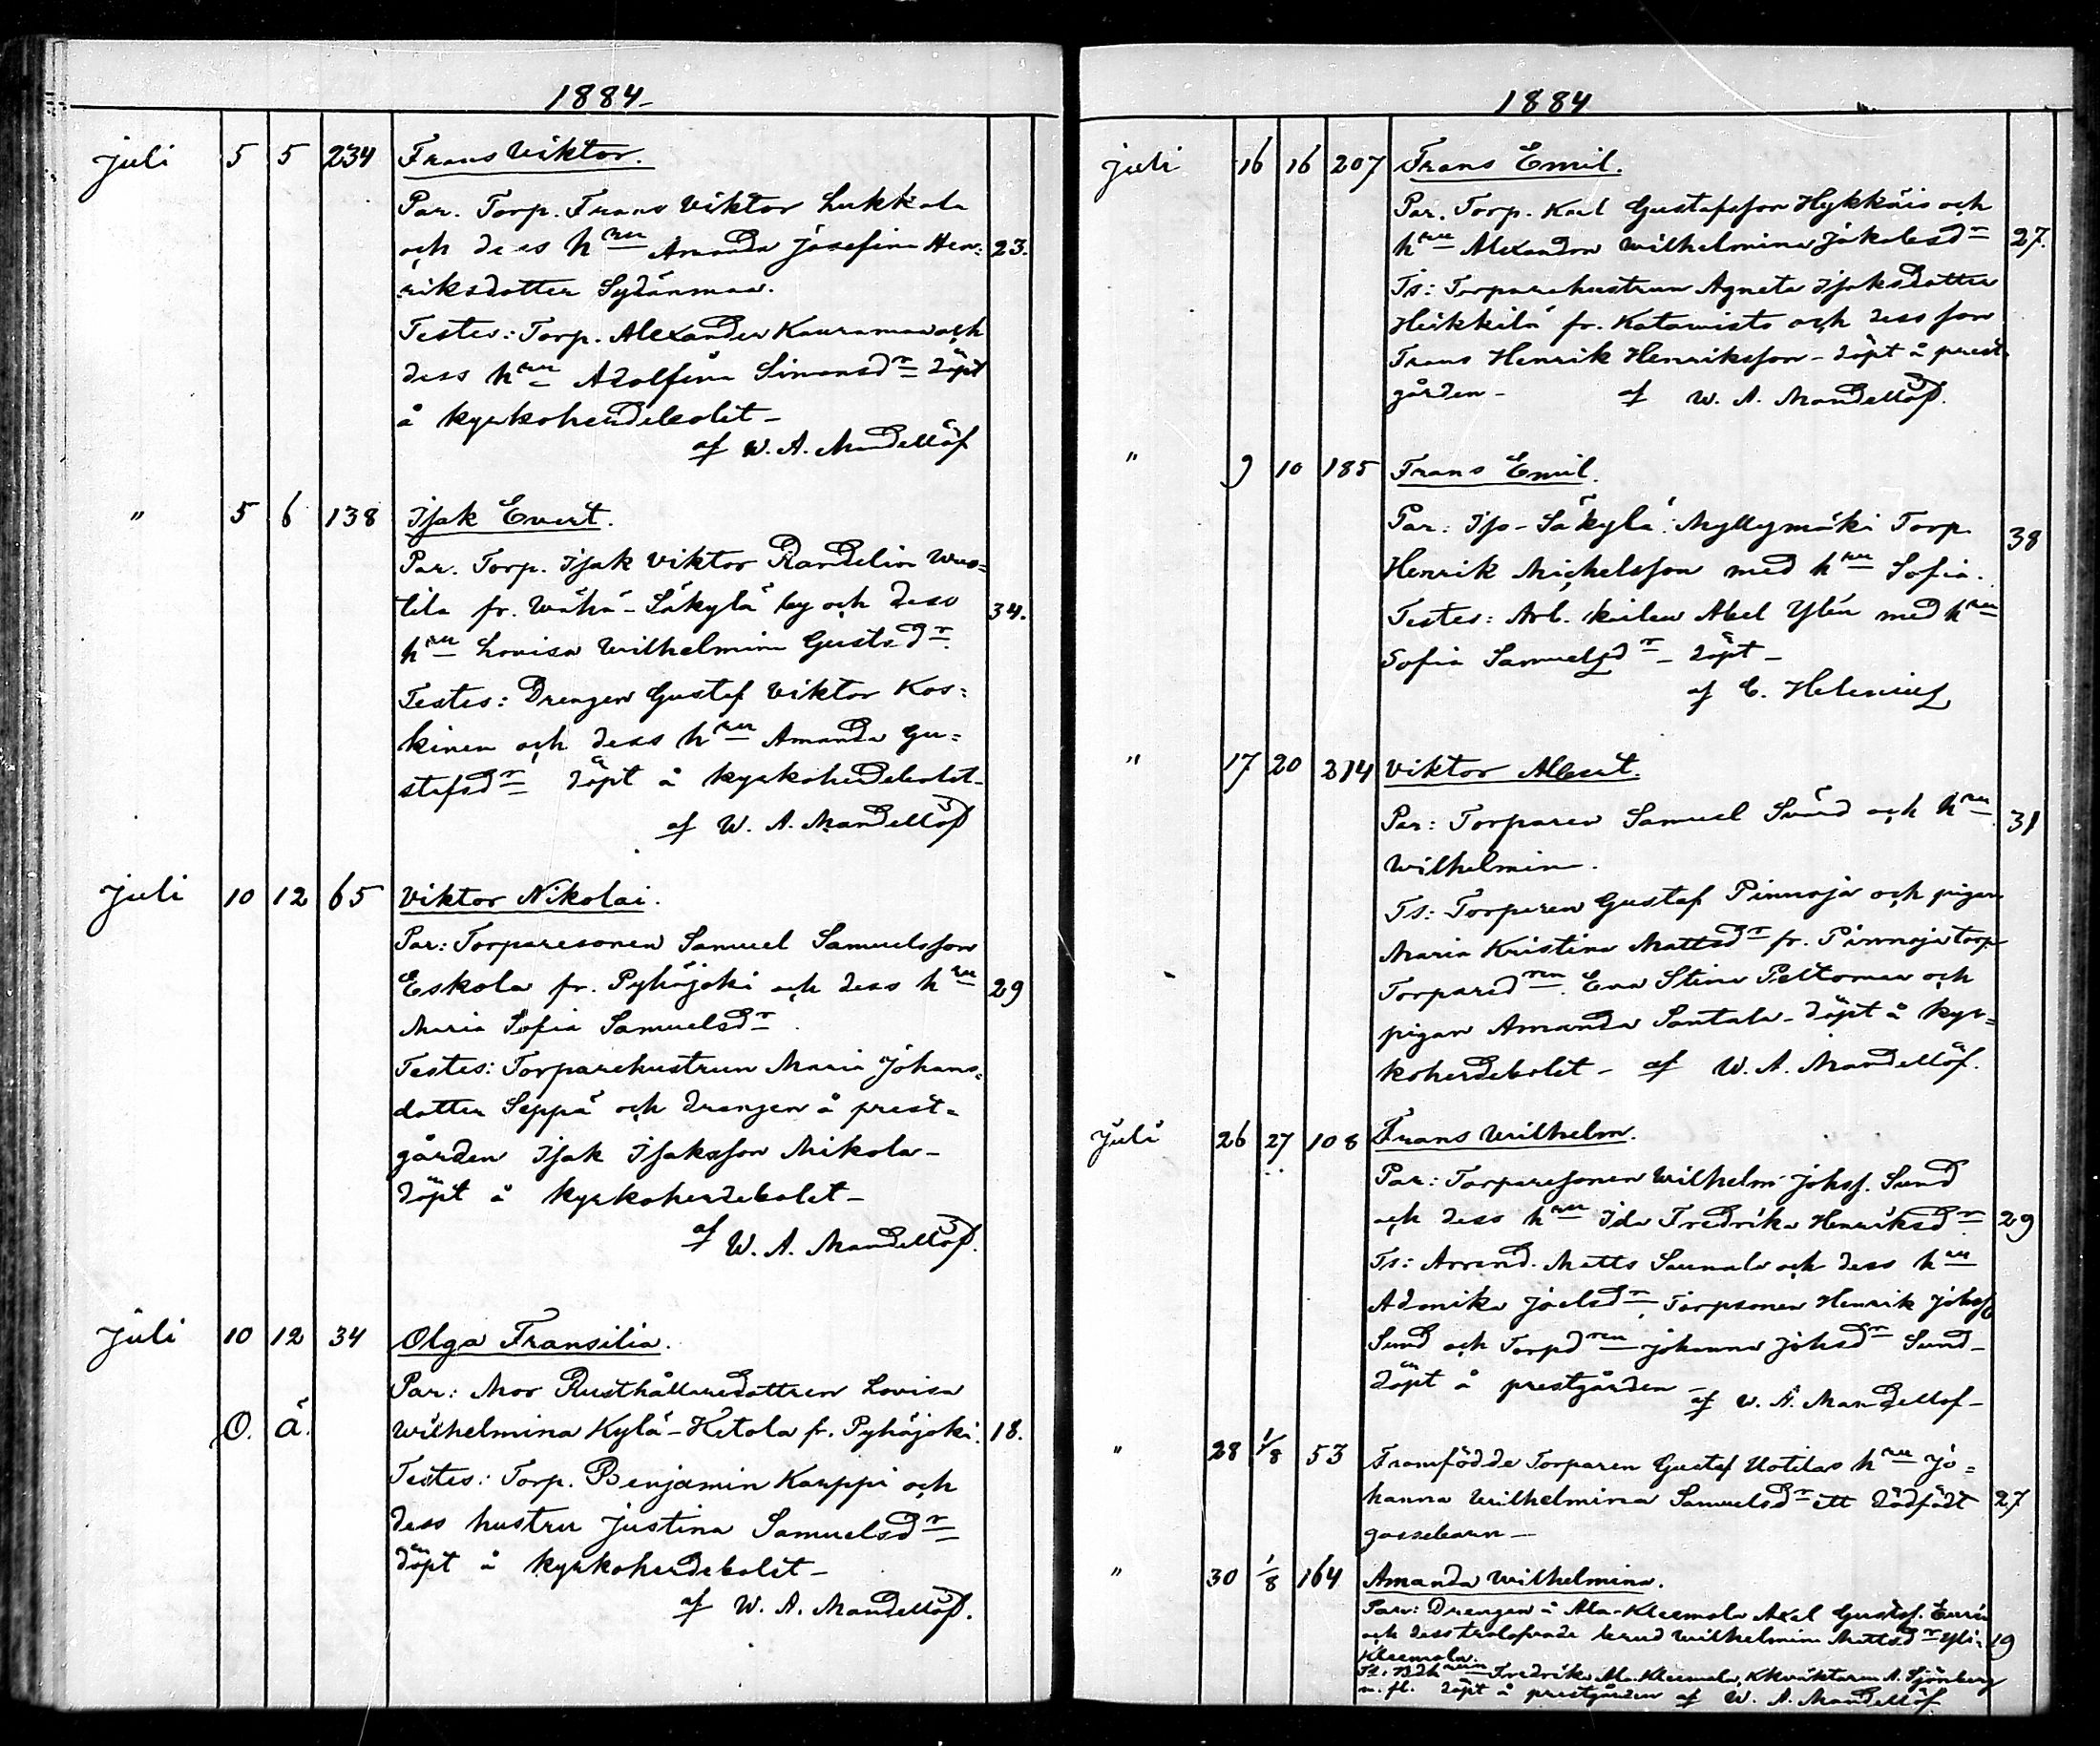 1884
juli 5 5 234 Frans Viktor.
Par. Torp. Frans Viktor Lukkala
och dess hru Amanda Josefina Hen= 23.
riksdotter Sydänmaa.
Testes: Torp. Alexander Kauramaa och
dess hru Adolfina Simonsdr döpt
å kyrkoherdebolet –
af W. A. Mandellöf
" 5 6 138 Isak Evert.
Par. Torp. Isak Viktor Randelin Wus=
tila fr. Wähä-Säkylä by och dess 34.
hru Lovisa Wilhelmina Gustdr.
Testes: Drengen Gustaf Viktor Kos=
kinen och dess hru Amanda Gu=
stafsdr döpt å kyrkoherdebolet –
af W. A. Mandellöf
juli 10 12 65 Viktor Nikolai.
Par: Torparesonen Samuel Samuelsson
Eskola fr. Pyhäjoki och dess hru 29
Maria Sofia Samuelsdr.
Testes: Torparehustrun Maria Johans=
dotter Seppä och drengen å prest=
gården Isak Isaksson Mikola –
döpt å kyrkoherdebolet –
af W. A. Mandellöf.
juli 10 12 34 Olga Fransilia.
Par: Mor Rusthållaredottren Lovisa
O. Ä. Wilhelmina Kylä-Ketola fr. Pyhäjoki. 18.
Testes: Torp. Benjamin Karppi och
dess hustru Justina Samuelsdr
döpt å kyrkoherdebolet –
af W. A. Mandellöf.
1884
juli 16 16 207 Frans Emil.
Par. Torp. Karl Gustafsson Hykkäis och
hru Alexandra Wilhelmina Jakobsdr 27.
Ts: Torparehustrun Agneta Isaksdotter
Heikkilä fr. Katawisto och dess son
Frans Henrik Henriksson – döpt å prest=
gården – af W. A. Mandellöf.
" 9 10 185 Frans Emil.
Par: Iso-Säkylä Myllymäki Torp. 38
Henrik Michelsson med hru Sofia.
Testes: Arb. karlen Abel Ylén med hru
Sofia Samuelsdr – döpt –
af C. Helenius
" 17 20 214 Viktor Albert.
Par: Torparen Samuel Svärd och hru 31
Wilhelmina.
Ts: Torparen Gustaf Pinnoja och pigan
Maria Kristina Mattsdr fr. Pinnoja torp
Torparedren Eva Stina Peltomaa och
pigan Amanda Santala – döpt å kyr=
koherdebolet – af W. A. Mandellöf.
Juli 26 27 108 Frans Wilhelm.
Par: Torparesonen Wilhelm Johss. Sund
och dess hru Ida Fredrika Henriksdr 29
Ts: Arrend. Matts Saunala och dess hru
Admika Joelsdr, Torpsonen Henrik Johss
Sund och Torpdren Johanna Johsdr Sund –
döpt å prestgården –
af W. A. Mandellöf –
" 28 1/8 53 Framfödde Torparen Gustaf Uotilas hru Jo=
hanna Wilhelmina Samuelsdr ett dödfödt 27
gossebarn –
" 30 1/8 164 Amanda Wilhelmina.
Par: Drengen å Ala-Kleemola Axel Gustafs.
och dess trolofvade brud Wilhelmina Mattsdr Yli- 19
Kleemola.
Fredrika Ala-Kleemola, A. Sjönberg
m. fl. döpt å prestgården af W. A. Mandellöf